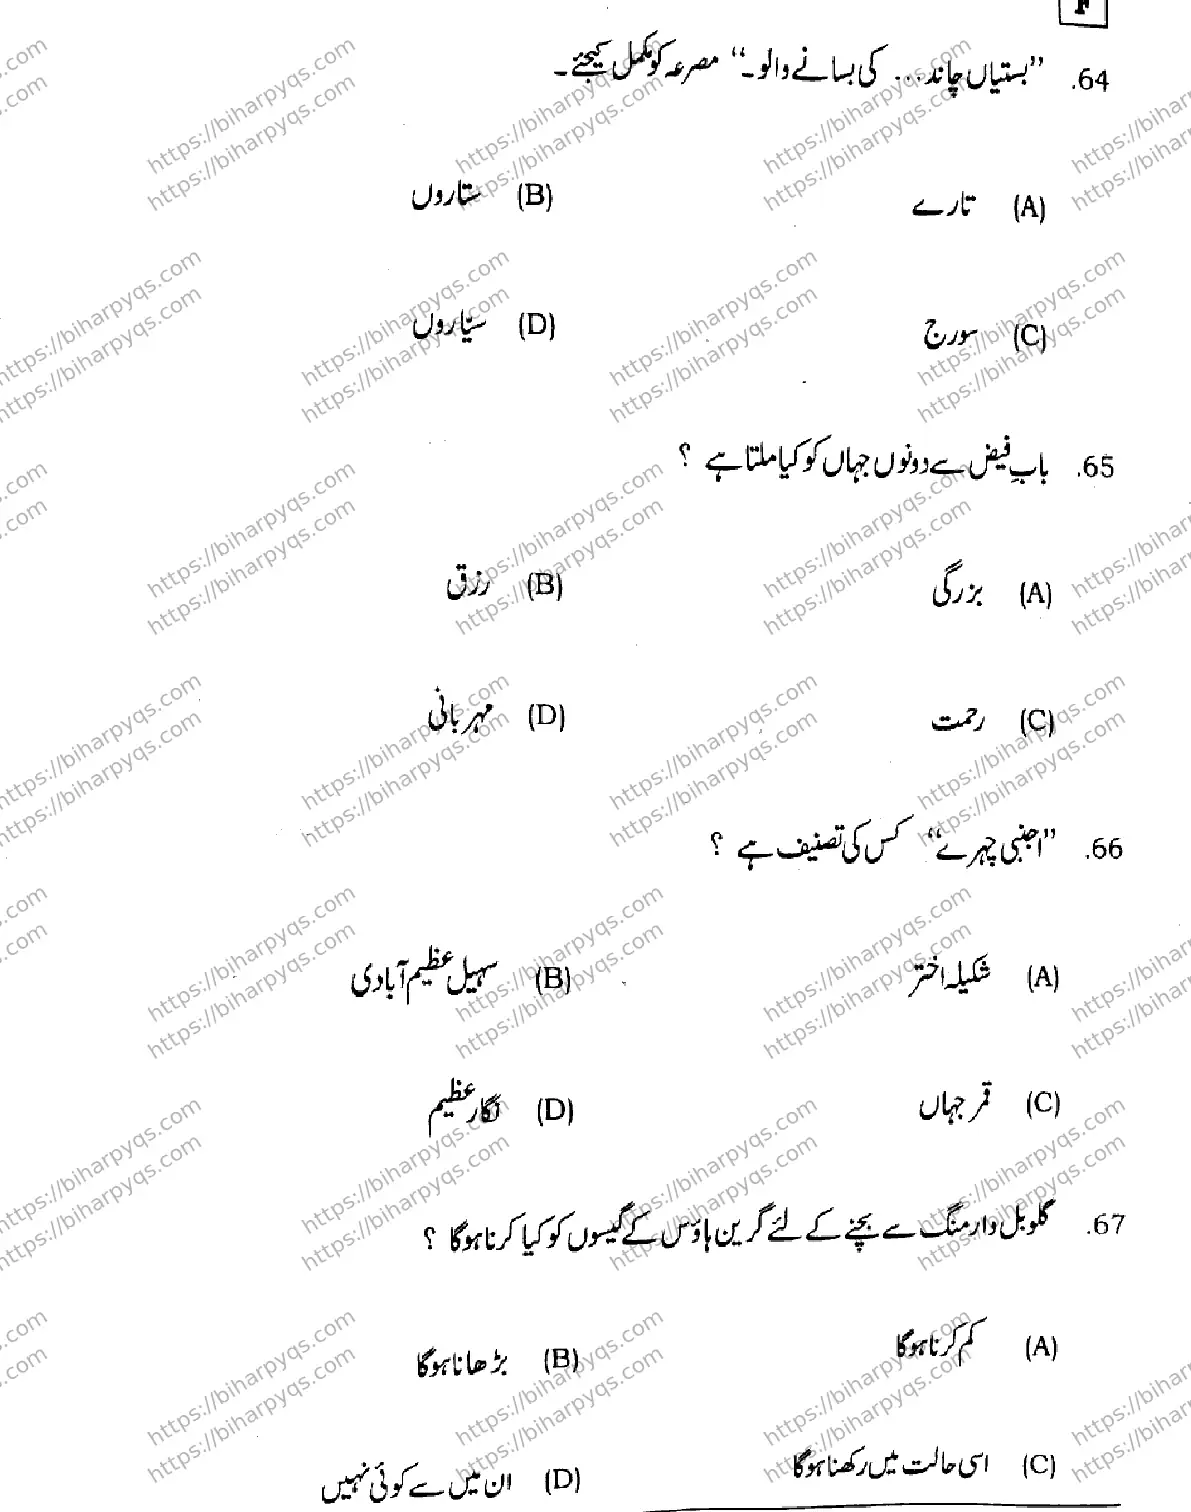 F
64. ”بستیاں چاند ... کی بسانے والو۔“ مصرعہ کو مکمل کیجئے۔
(A) تارے (B) ستاروں
(C) سورج (D) سیّاروں
65. بابِ فیض سے دونوں جہاں کو کیا ملتا ہے ؟
(A) بزرگی (B) رزق
(C) رحمت (D) مہربانی
66. ”اجنبی چہرے“ کس کی تصنیف ہے ؟
(A) شکیلہ اختر (B) سہیل عظیم آبادی
(C) قمر جہاں (D) نگار عظیم
67. گلوبل وارمنگ سے بچنے کے لئے گرین ہاؤس کے گیسوں کو کیا کرنا ہوگا ؟
(A) کم کرنا ہوگا (B) بڑھانا ہوگا
(C) اسی حالت میں رکھنا ہوگا (D) ان میں سے کوئی نہیں
https://biharpyqs.com